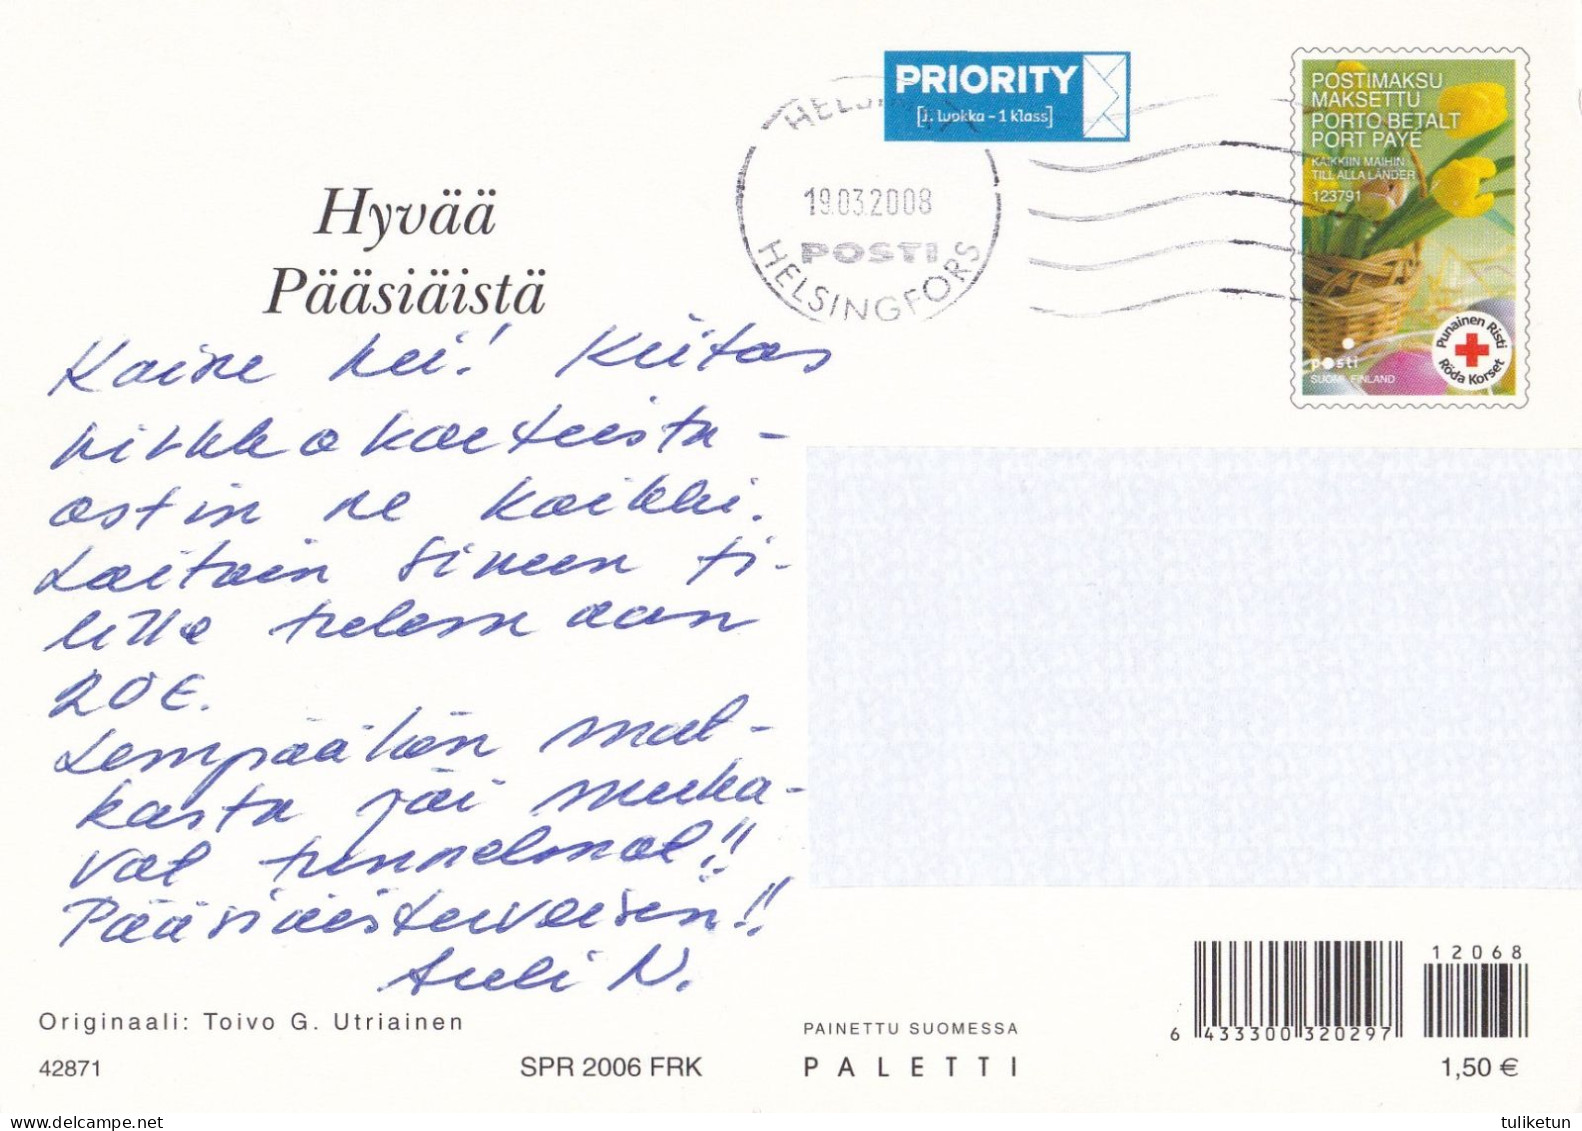 PRIORITY
[1. luokka - 1 klass]
HELSINKI
19.03.2008
POSTI
HELSINGFORS
POSTIMAKSU
MAKSETTU
PORTO BETALT
PORT PAYÉ
KAIKKIIN MAIHIN
TILL ALLA LÄNDER
123791
posti
SUOMI FINLAND
Punainen Risti
Röda Korset
Hyvää
Pääsiäistä
hei! Kiitos
kirkkokorteista -
ostin ne kaikki.
Laitoin sinun ti-
lille tulemaan
20€.
Lempäälän mat-
kasta jäi muka-
vat tunnelmat!!
Pääsiäisterveisin!!
Auli N.
Originaali: Toivo G. Utriainen
42871
SPR 2006 FRK
PAINETTU SUOMESSA
PALETTI
12068
6 433300 320297
1,50 €
tuliketun